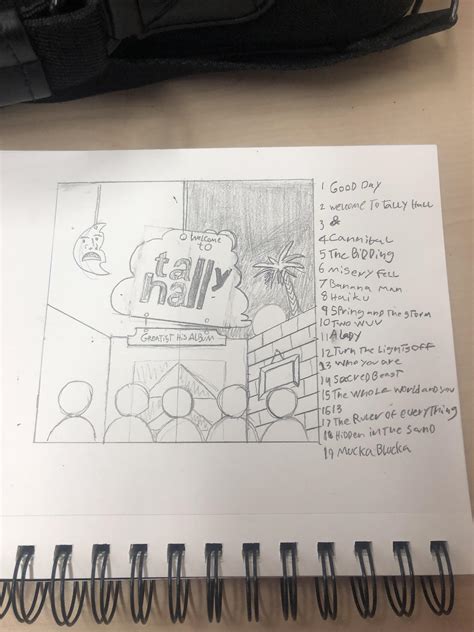 welcome
to
tally
hall
GREATIST Hits ALBUM
1 GOOD DAY
2 welcome To Tally Hall
3 &
4 Cannibal
5 The BiDDing
6 misery Fell
7 Banana man
8 Haiku
9 Spring and The storm
10 Two wuv
11 A lady
12 Turn The Lights OFF
13 who you are
14 Sacred Beast
15 The whole world and you
16 13
17 The Ruler oF everyThing
18 Hidden in The Sand
19 Mucka Blucka